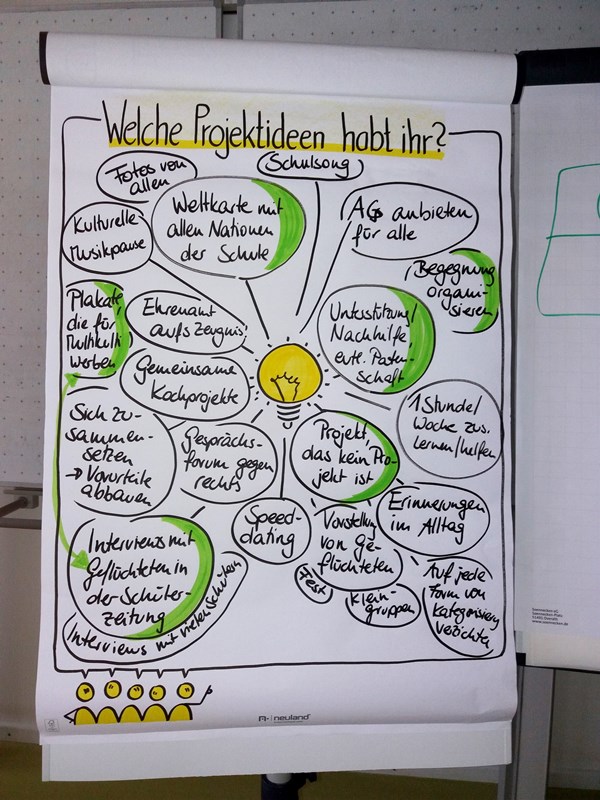 Welche Projektideen habt ihr?
Fotos von
allen
Schulsong
Weltkarte mit
allen Nationen
der Schule
AGs anbieten
für alle
Kulturelle
Musikpause
Begegnung
organi-
sieren
Plakate,
die für
Multikulti
werben
Ehrenamt
aufs Zeugnis
Unterstützung/
Nachhilfe
evtl. Paten-
schaft
Gemeinsame
Kochprojekte
1 Stunde/
Woche zus.
Lernen/helfen
Sich zu-
sammen-
setzen
→ Vorurteile
abbauen
Gesprächs-
forum gegen
rechts
Projekt,
das kein Pro-
jekt ist
Erinnerungen
im Alltag
Speed-
dating
Vorstellung
von Ge-
flüchteten
Fest
Klein-
gruppen
Auf jede
Form von
Kategorisierg
verzichten
Interviews mit
Geflüchteten in
der Schüler-
zeitung
Interviews mit vielen Schülern
neuland